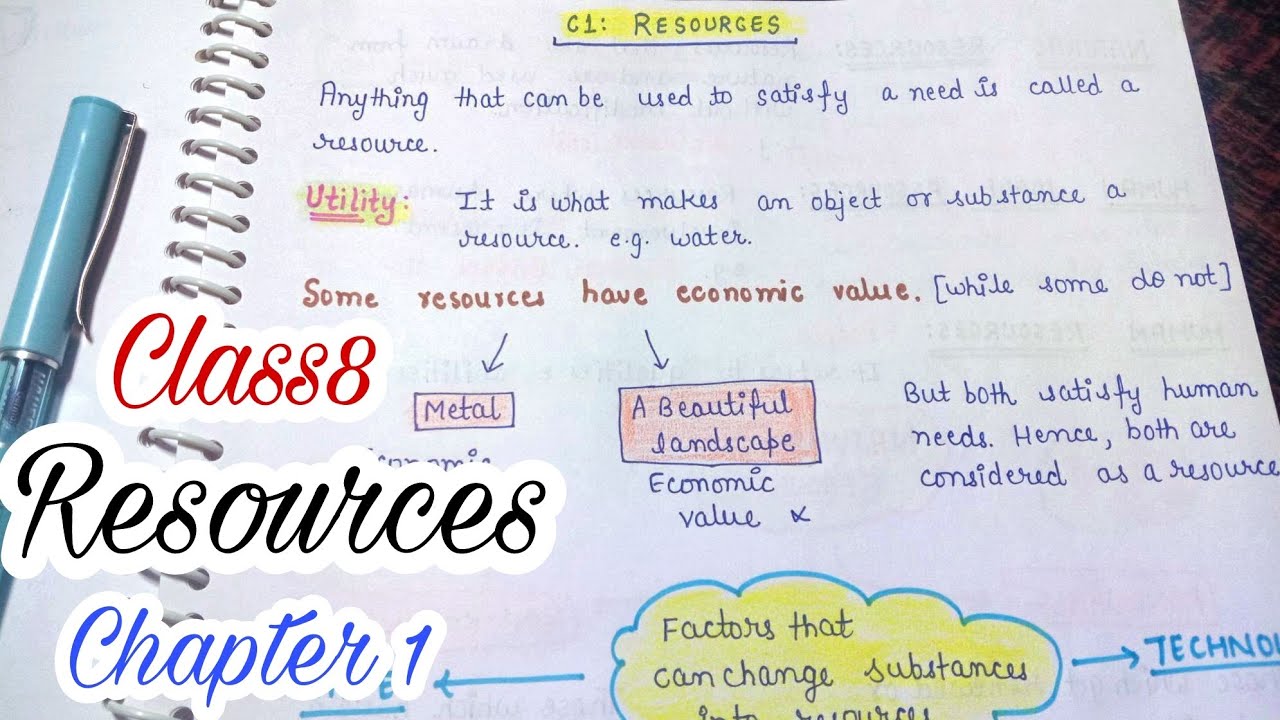 C1: RESOURCES
Anything that can be used to satisfy a need is called a
resource.
Utility: It is what makes an object or substance a
resource. e.g. water.
Some resources have economic value. [while some do not]
Metal
A Beautiful
landscape
Economic
value x
But both satisfy human
needs. Hence, both are
considered as a resource
Class8
Resources
Chapter 1
Factors that
can change substances
into resources
TECHNOLO